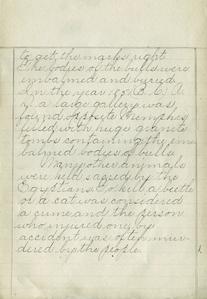 to get the marks right
The bodies of the bulls were
embalmed and buried,
In the year 1851 A.
a large gallery was,
found opposite Memphis
filled with huge granite
tombs containing the em
balmed bodies of bulls.
Many other animals
were held sacred by the
Egyptians. To kill a beetle
or a cat was considered
a crime and the person
who injured one by
accident was often mur-
dered by the people